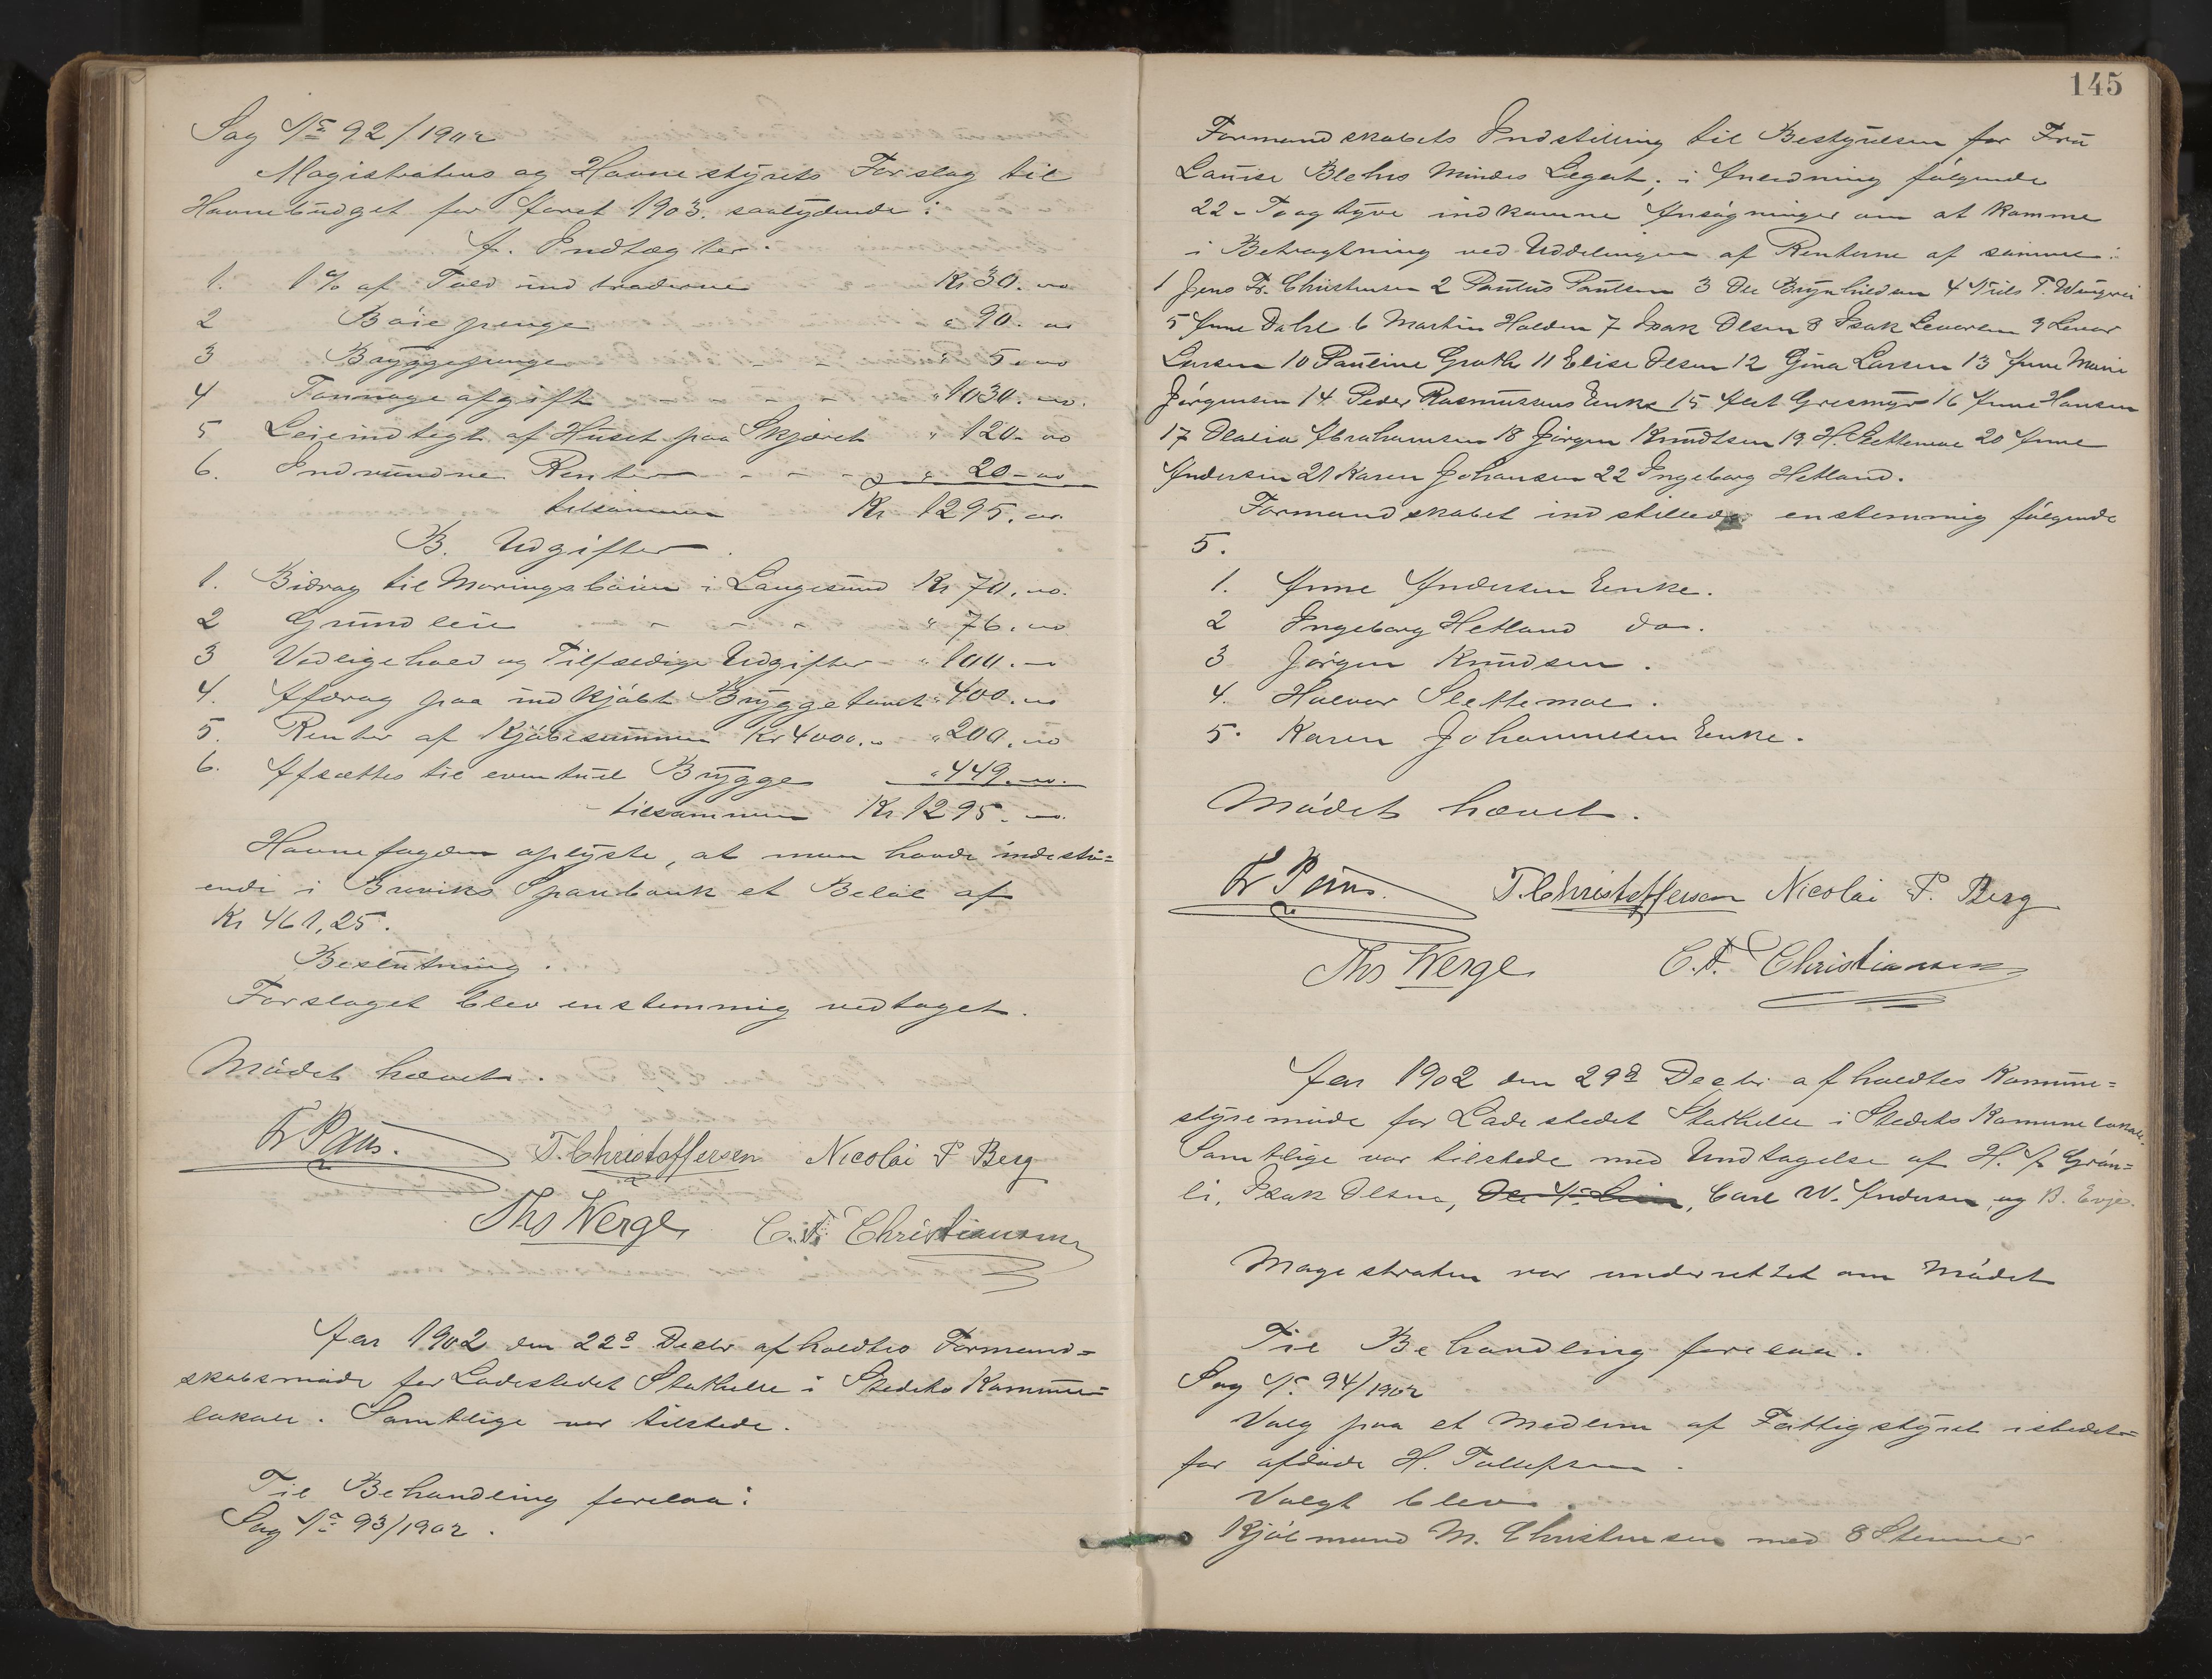 Sag No 92/1902
Magistratens og Havnestyrets Forslag til
Havnebudget for Aaret 1903. saalydende:
A. Indtægter.
1. 1% af Told indtraderne Kr 30. 00
2 Bøiepenge " 90. 00
3 Bryggepenge - - " 5. 00
4 Tonnageafgift - - - - " 1030. 00.
5 Leieindtægt af Huset paa Skjæret " 120. 00
6. Indvundne Renter - - - " 20-00
tilsammen Kr 1295. 00.
B. Udgifter.
1. Bidrag til Moringsbøien i Langesund Kr 70. 00.
2 Grundleie - - - " 76. 00
3 Vedligehold og Tilfældige Udgifter " 100. -
4. Afdrag paa indkjøbt Bryggetomt " 400. 00
5. Renter af Kjøbesummen Kr 4000.00 " 200. 00
6. Afsættes til eventuel Brygge " 449. 00.
tilsammen Kr. 1295. 00.
Havnefogden oplyste, at man havde indestaa=
ende i Breviks Sparebank et Beløb af
Kr 461,25.
Beslutning.
Forslaget blev enstemmig vedtaget.
Mødet hævet.
Fr Paus. T. Christoffersen Nicolai P Berg
Ths Werge C. F. Christiansen
Aar 1902 den 22d Decbr afholdtes Formand=
skabsmøde for Ladestedet Stathelle i Stedets Kommune=
lokale. Samtlige var tilstede.
Til Behandling forelaa:
Sag No 93/1902.
145
Formandskabets Indstilling til Bestyrelsen for Fru
Louise Blehrs Mindes Legat; i Anledning følgende
22 - Toogtyve indkomne Ansøgninger om at komme
i Betragtning ved Uddelingen af Renterne af samme:
1 Jens Fr. Christensen 2 Paulus Paulsen 3 Ole Brynhildsen 4 Nils T.
5 Anne Dahl 6 Martin Halden 7 Isak Olsen 8 Isak Leversen 9 Levor
Larsen 10 Pauline Groth 11 Elise Olsen 12 Gina Larsen 13 Anne Marie
Jørgensen 14 Peder Rasmussens Enke 15 16 Anne Hansen
17 Abrahamsen 18 Jørgen Knudtsen 19 H. Slettemoe 20 Anne
Andersen 21 Karen Johansen 22 Ingeborg Hetland.
Formandskabet indstillede enstemmig følgende
5.
1. Anne Andersen Enke.
2 Ingeborg Hetland do.
3 Jørgen Knudsen.
4. Halvor Slettemoe.
5. Karen Johannesen Enke.
Mødet hævet.
Fr Paus. T. Christoffersen Nicolai P. Berg
Ths Werge C. F. Christiansen
Aar 1902 den 29d Decbr. afholdtes Kommune=
styremøde for Ladestedet Stathelle i Stedets Kommunelokale.
Samtlige var tilstede med Undtagelse af H. A. Grøn=
li, Isak Olsen, Carl W. Andersen, og B. Evje.
Magistraten var underrettet om Mødet
Til Behandling forelaa.
Sag No 94/1902
Valg paa et Medlem af Fattigstyret istedet=
for afdøde H. Tollefsen.
Valgt blev.
Kjøbmand M. Christensen med 8 Stemmer